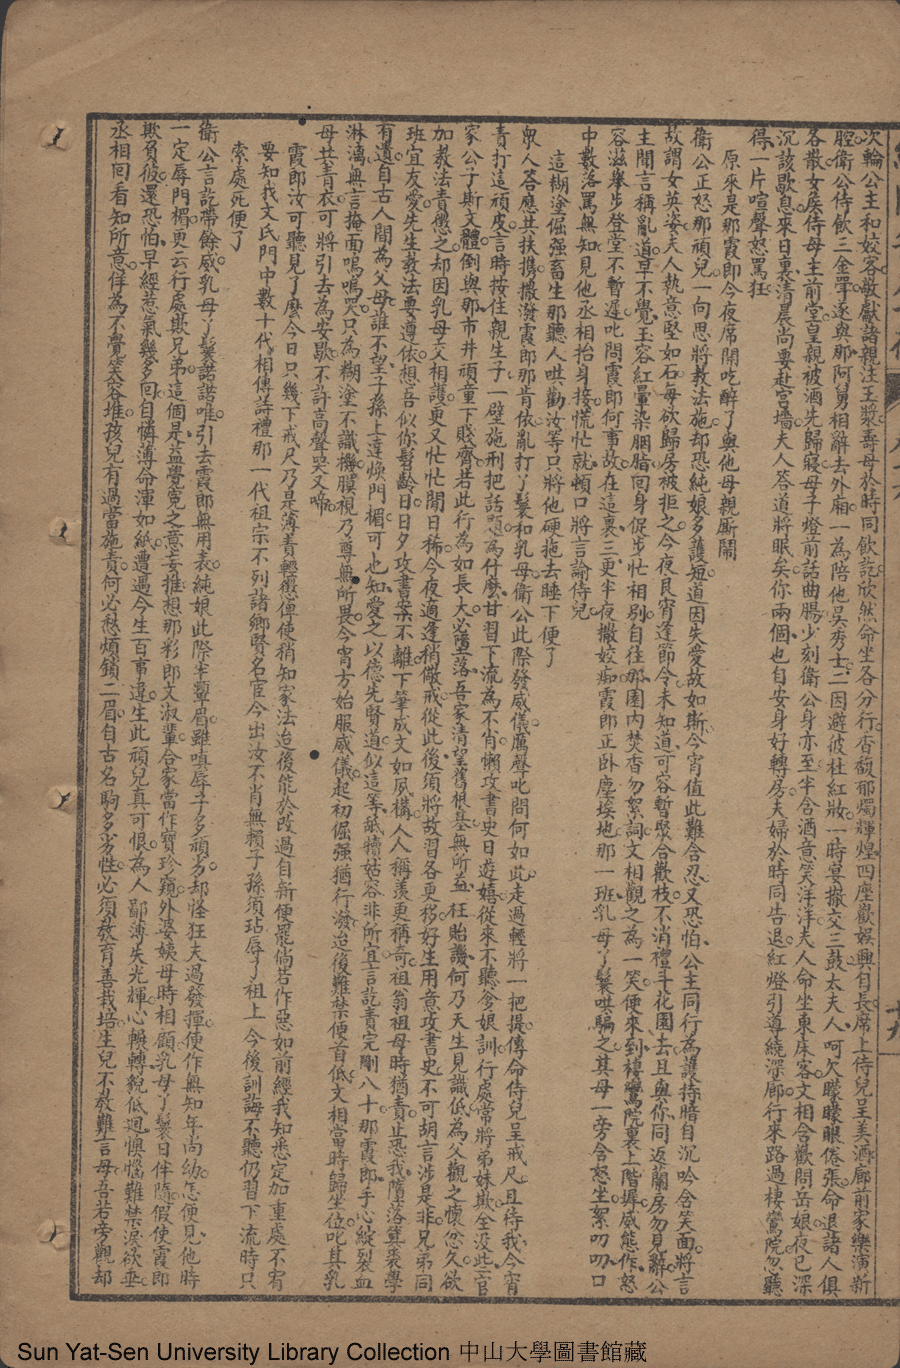 次輪公主和姣客敬獻諸親注玉漿壽母於時同飲訖欣然命坐各分行香馥郁燭輝煌四座歡娛興自長席上侍兒呈美酒廊前家樂演新
腔衛公侍飲三金斝遂與那阿舅相辭去外廂一為陪他吳秀士二因避彼杜紅妝一時宴撤交三鼓太夫人呵欠矇矓眼倦張命退諸人俱
各散女庾侍母主前堂皇親被酒先歸寢母子燈前話曲腸少刻衛公身亦至半含酒意笑洋洋夫人命坐東床客文相含歡問岳娘夜已深
沉該歇息來日裏清晨尚要赴宮墻夫人答道將眠矣你兩個也自安身好轉房夫婦於時同告退紅燈引導繞深廊行來路過棲鸞院忽聽
得一片喧聲怒罵狂
原來是那霞郎今夜席間吃醉了與他母親廝鬧
衛公正怒那頑兒一向思將教法施却恐純娘多護短道因失愛故如斯今宵值此難含忍又恐怕公主同行為護持暗自沉吟含笑面將言
故謂女英姿夫人執意堅如石每欲歸房被拒之今夜良宵逢節令未知道可容暫聚合歡枝不消禮斗花園去且與你同返蘭房勿見辭公
主聞言稱亂道早不覺玉容紅暈染胭脂回身促步忙相別自往那園内焚香勿絮詞文相觀之為一笑便來到棲鸞院裏上階墀威態作怒
容滋舉步登堂不暫遲叱問霞郎何事故在這裏三更半夜撒姣痴霞郎正卧塵埃地那一班乳母丫鬟哄騙之其母一旁含怒坐絮叨叨口
中數落罵無知見他丞相抬身接慌忙就頓口將言諭侍兒
這糊塗倔强畜生那聽人哄勸汝等只將他硬拖去睡下便了
衆人答應其扶携撒潑霞郎那肯依亂打丫鬟和乳母衛公此際發威儀厲聲叱問何如此走過輕將一把提傳命侍兒呈戒尺且待我今宵
責打這頑皮言時按住親生子一壁施刑把話題為什麼甘習下流為不肖懶攻書史日遊嬉從來不聽爹娘訓行處常將弟妹欺全没此宦
家公子斯文體倒與那市井頑童下賤齊若此行為如長大必墮落吾家清望舊根基無所益枉貽譏何乃天生見識低為父觀之懷忿久欲
加教法責懲之却因乳母交相護更又忙忙閒日稀今夜適逢稍儆戒從此後須將故習各更移好生用意攻書史不可胡言涉是非兄弟同
班宜友愛先生教法要遵依想吾似你髫齡日日夕攻書案不離下筆成文如夙構人人稱羨更稱奇祖翁祖母時猶責止恐我墮落箕裘學
有遺自古人間為父母誰不望子孫上達煥門楣可也知愛之以德先賢道似這等舐犢姑容非所宜言訖責完剛八十那霞郎手心綻裂血
淋漓無言掩面嗚嗚哭只為糊塗不識機膽視乃尊無所畏今宵方始服威儀起初倔强猶行潑迨後難禁便首低文相當時歸坐位叱其乳
母共青衣可將引去為安歇不許高聲哭又啼
霞郎汝可聽見了麼今日只幾下戒尺乃是薄責輕懲俾使稍知家法迨後能於改過自新便罷倘若作惡如前經我知悉定加重處不宥
要知我文氏門中數十代相傳詩禮那一代祖宗不列諸鄉賢名宦今出汝不肖無賴子孫須玷辱了祖上今後訓誨不聽仍習下流時只
索處死便了
衛公言訖帶餘威乳母丫鬟諾諾唯引去霞郎無用表純娘此際半顰眉雖嗔辱子多頑劣却怪狂夫過發揮使作無知年尚幼怎便見他時
一定辱門楣更云行處欺兄弟這個是益覺寃之意妄推想那彩郎文淑輩合家當作寶珍窺外婆姨母時相顧乳母丫鬟日伴隨假使霞郎
欺負彼還恐怕早經惹氣幾多回自憐薄命渾如紙遭遇今生百事違生此頑兒真可恨為人鄙薄失光輝心輾轉貌低迴懊惱難禁淚欲垂
丞相回看知所意佯為不覺笑容堆孩兒有過當施責何必愁煩鎖二眉自古名駒多劣性必須教育善栽培生兒不教難言母吾若旁觀却